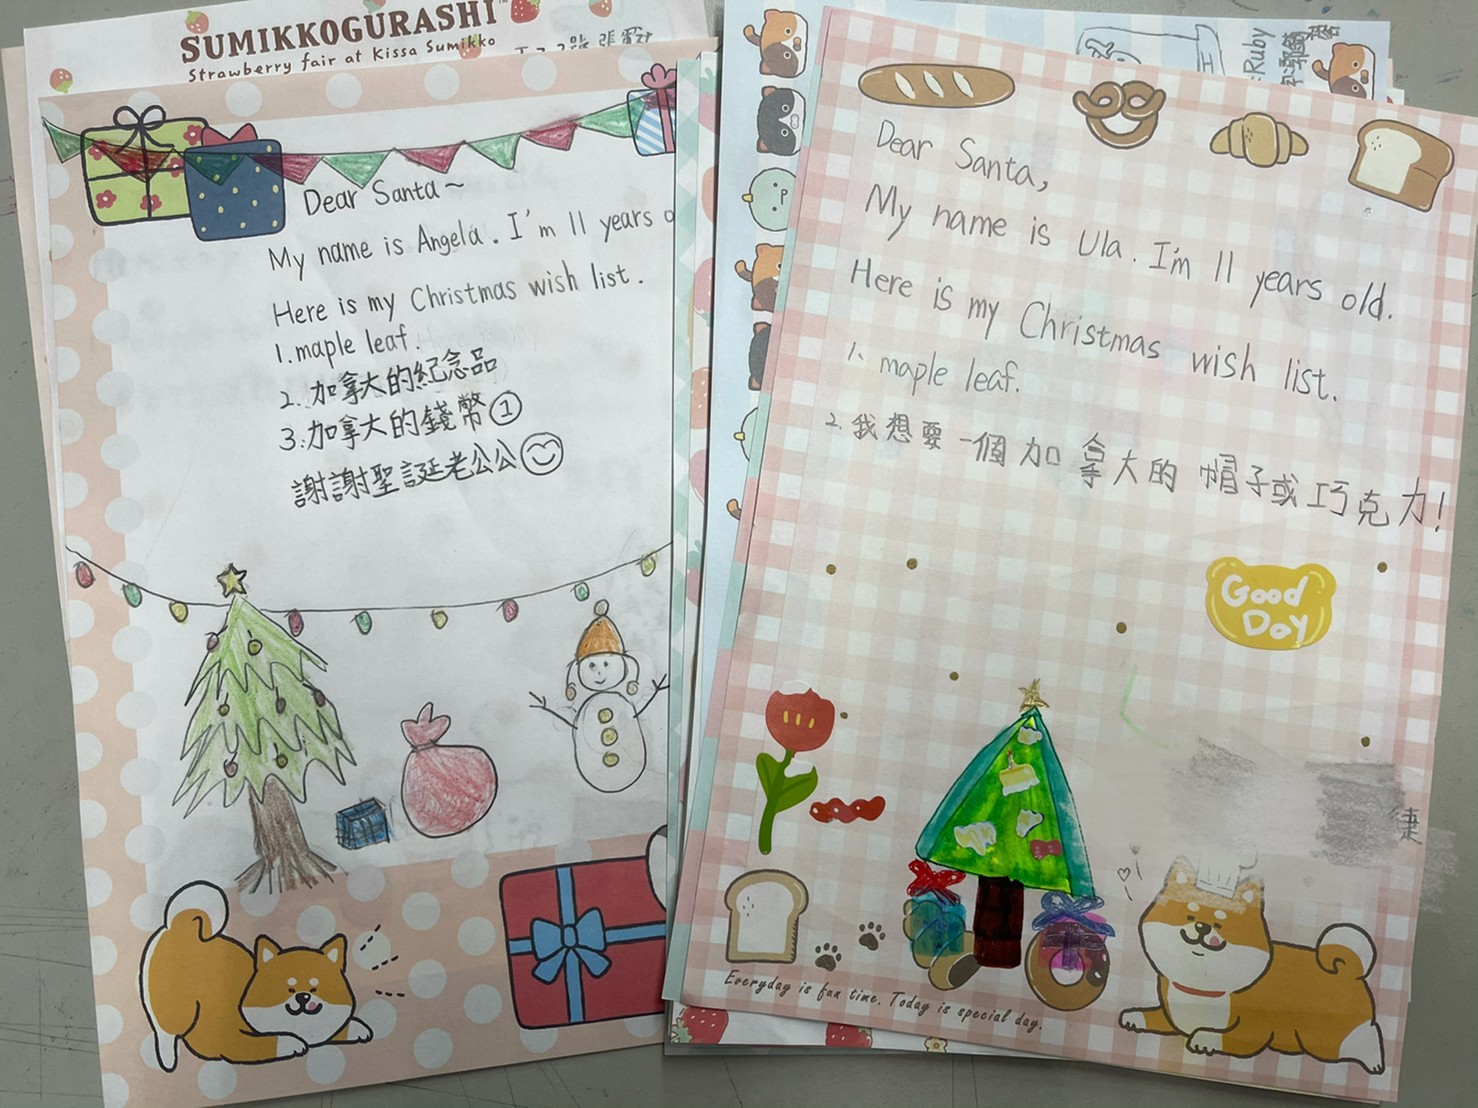 SUMIKKOGURASHI
Strawberry fair at Kissa Sumikko
Dear Santa~
My name is Angela. I'm 11 years o
Here is my Christmas wish list.
1. maple leaf.
2. 加拿大的紀念品
3. 加拿大的錢幣①
謝謝聖誕老公公
Ruby
Dear Santa,
My name is Ula. I'm 11 years old.
Here is my Christmas wish list.
1. maple leaf.
2. 我想要一個加拿大的帽子或巧克力!
Good
Day
捷
Everyday is fun time. Today is special day.